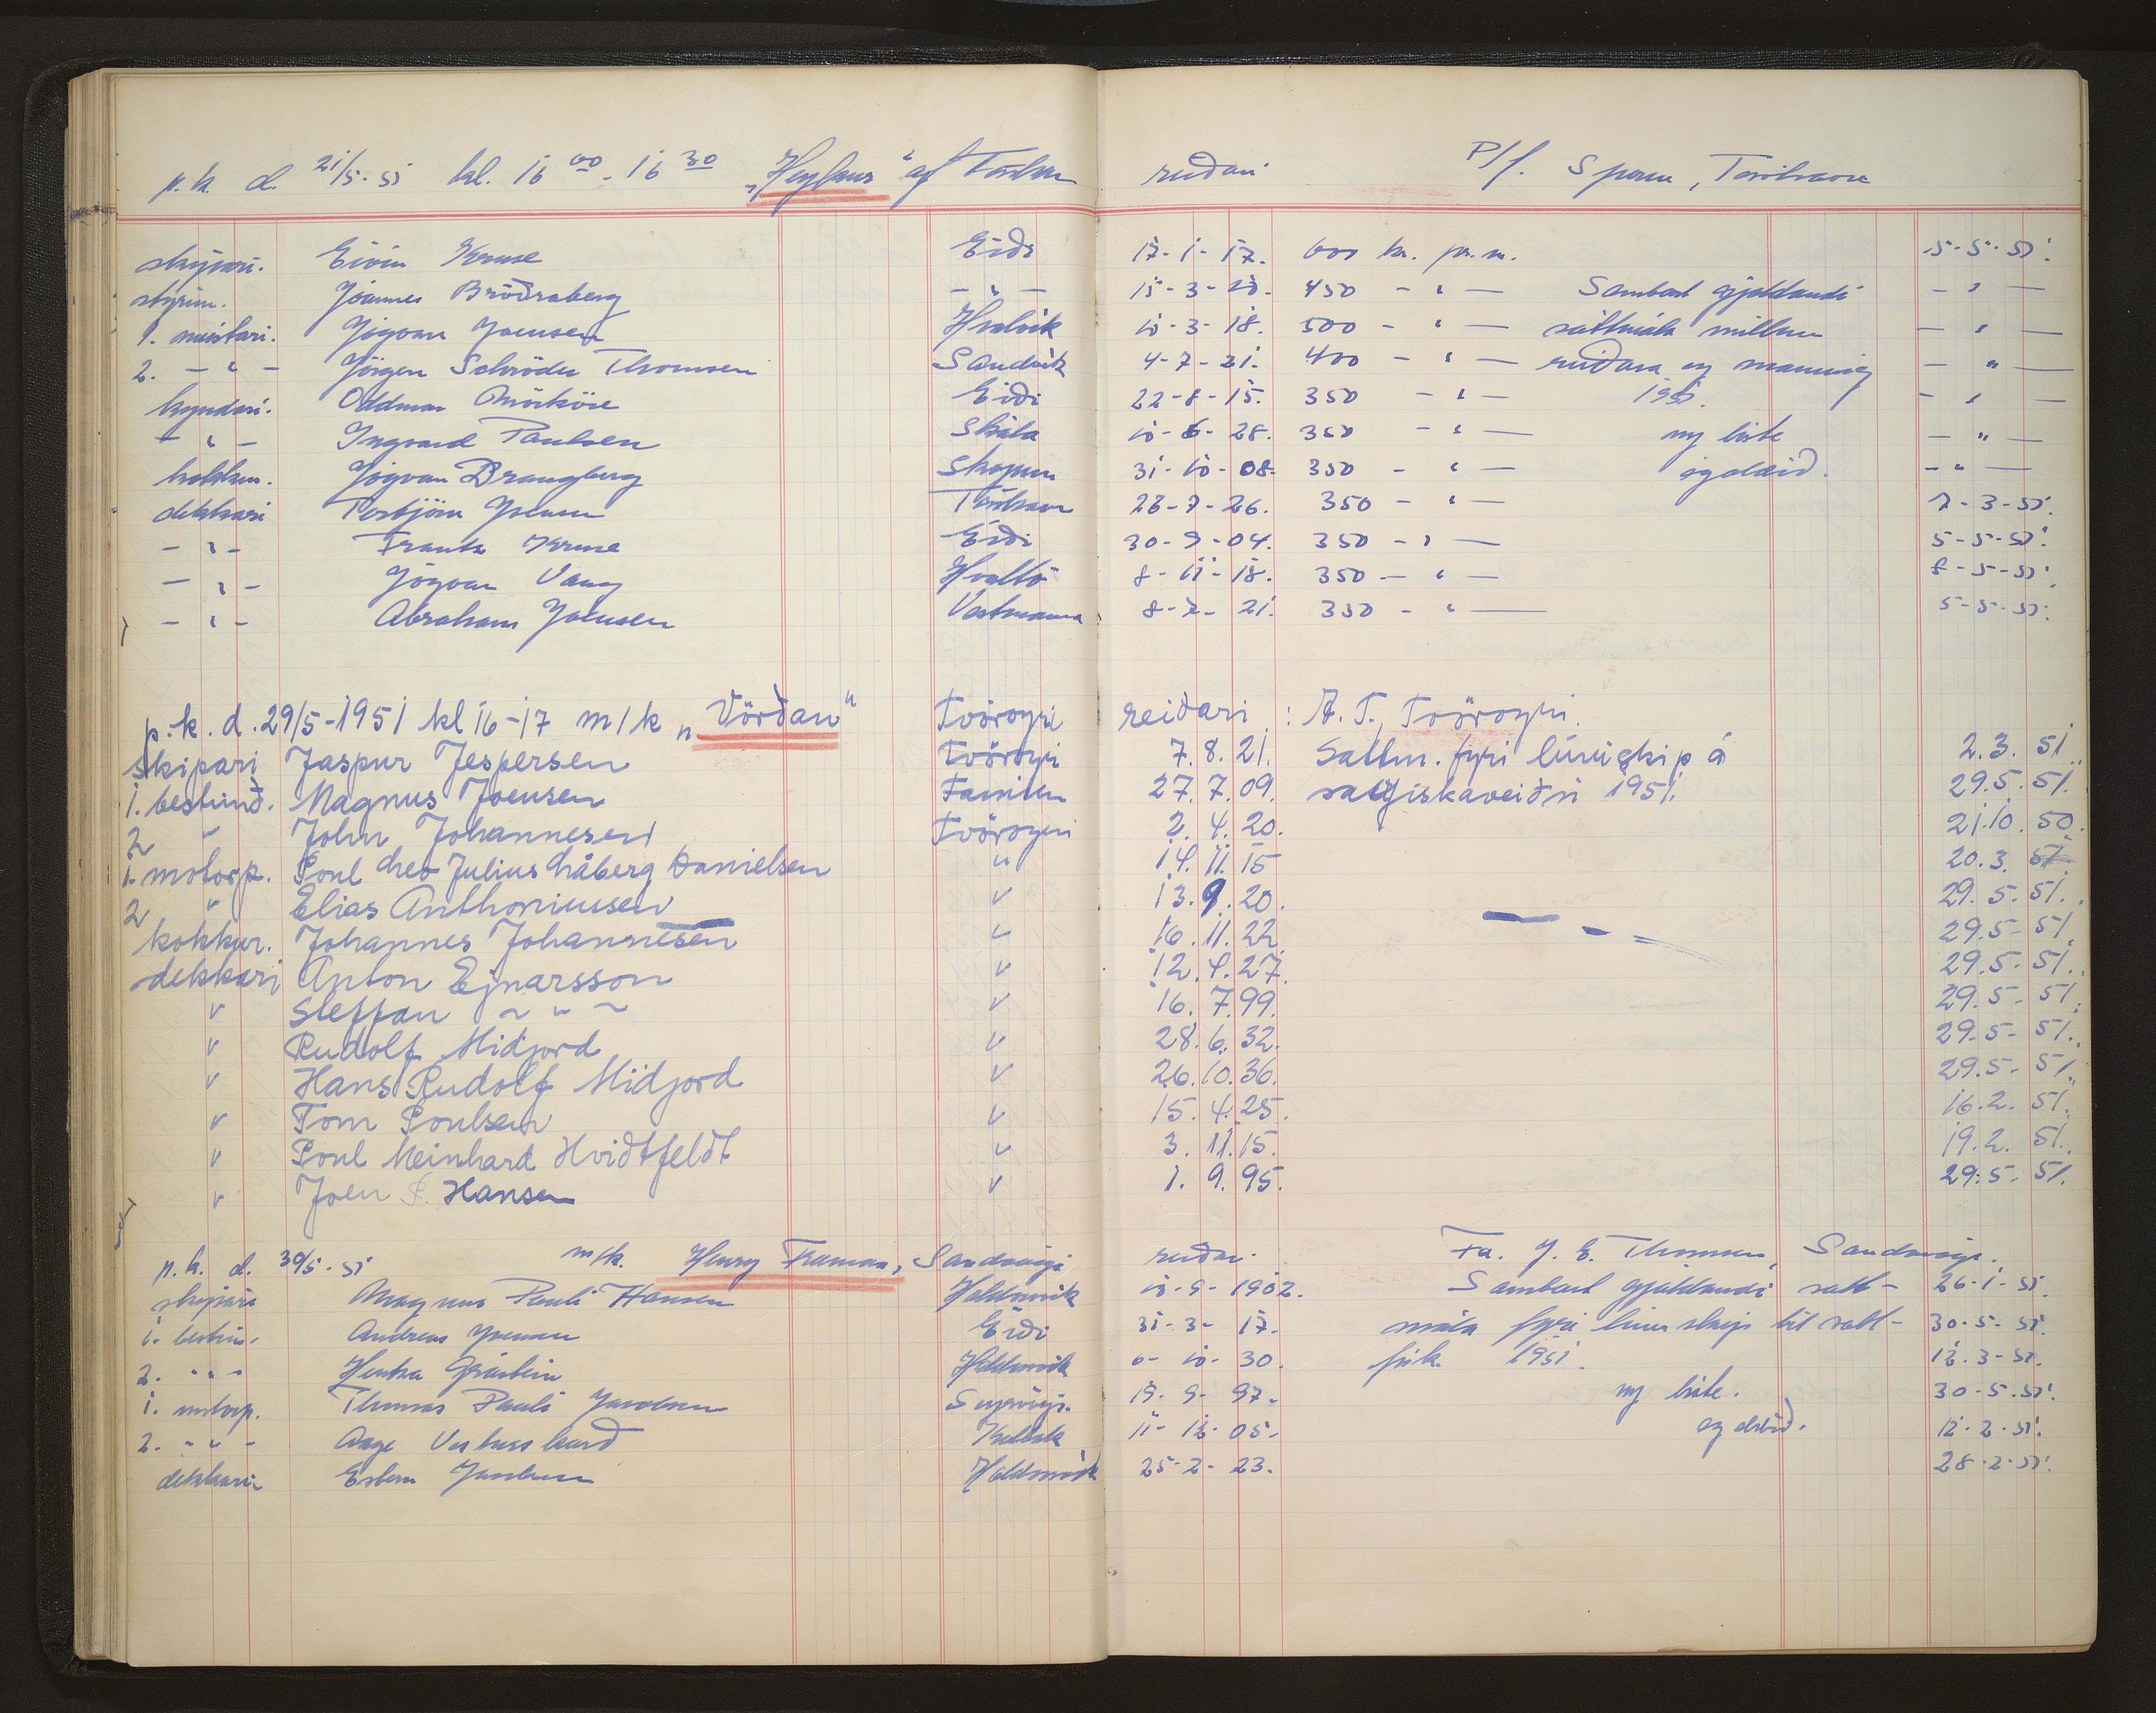 p.k. d. 21/5-51 kl. 16 00 - 16 30 „Heyglaus“ af Tórshavn reiðari P/f. Sperru, Tórshavn
skipari. Eivin Kruse Eiði 17-1-17. 600 kr. pr. m. 5-5-51.
stýrim. Jóannes Bröðraberg - " - 450 - " - Sambært gjaldandi - " -
1. meistari. Jógvan Joensen Hvalvík 10-3-18. 500 - " - sáttmála millum - " -
2. - " - Jörgen Schröder Thomsen Sandvík 4-7-21. 400 - " - reiðara og manning - " -
kyndari. Oddmar Mørköre Eiði 22-8-15. 350 - " - 1951. - " -
- " - Ingvard Poulsen Skála 10-6-28. 350 - " - og liste - " -
kokkur. Jógvan Brangberg Skopun 31-10-08. 350 - " - - " -
dekkari Torbjörn Joensen Tórshavn 350 - " - 7-3-51.
- " - Frants Kruse Eiði 30-9-04. 350 - " - 5-5-51.
- " - Jógvan Vang 8-11-18. 350 - " - 8-5-51.
- " - Abraham Joensen Vestmanna 350 - " - 5-5-51.
p.k. d. 29/5-1951 kl 16-17 m/k „Vörðan“ Tvöroyri reiðari : A. T., Tvöroyri.
skipari Jaspur Jespersen Tvöroyri 7.8.21. Sáttm. fyri línuskip á 2.3.51.
1. bestimð. Magnus Joensen Famien 27.7.09. saltfiskaveiðu 1951. 29.5.51.
2 " John Johannesen Tvöroyri 2.4.20. 21.10.50.
1. motorp. Poul Leo Julius Låberg Danielsen " 14.11.15 20.3.51
2 " Elias Anthoniussen " 13.9.20. 29.5.51.
kokkur. Johannes Johannesen " 16.11.22. 29.5.51.
dekkari Anton Ejnarsson " 12.4.27. 29.5.51.
" Steffan " " 16.7.99. 29.5.51.
" Rudolf Miðjord " 28.6.32. 29.5.51.
" Hans Rudolf Miðjord " 26.10.36. 29.5.51.
" Tom Poulsen " 15.4.25. 16.2.51.
" Poul Meinhard Hviðtfeldt " 3.11.15. 19.2.51.
" Joen P. Hansen " 1.9.95. 29.5.51.
p.k. d. 30/5-51 m/k. Henry Freeman, Sandavági reiðari. Fa. J. E. Thomsen, Sandavági.
skipari Magnus Pauli Hansen Haldarsvík 10-9-1902. Sambært gjaldandi sátt- 26-1-51.
1. bestim. Andreas Joensen Eiði 31-3-17. mála fyri línuskip til salt- 30-5-51.
2. - " - Hentza Haldarsvík 6-10-30. fisk 1951. 12-3-51.
1. motorp. Thomas Pauli Jacobsen 19-9-97. og liste. 30-5-51.
2. - " - Aage Kollafj. 11-12-05. 12-2-51.
dekkari Esbern Jacobsen Haldarsvík 25-2-23. 28-2-51.